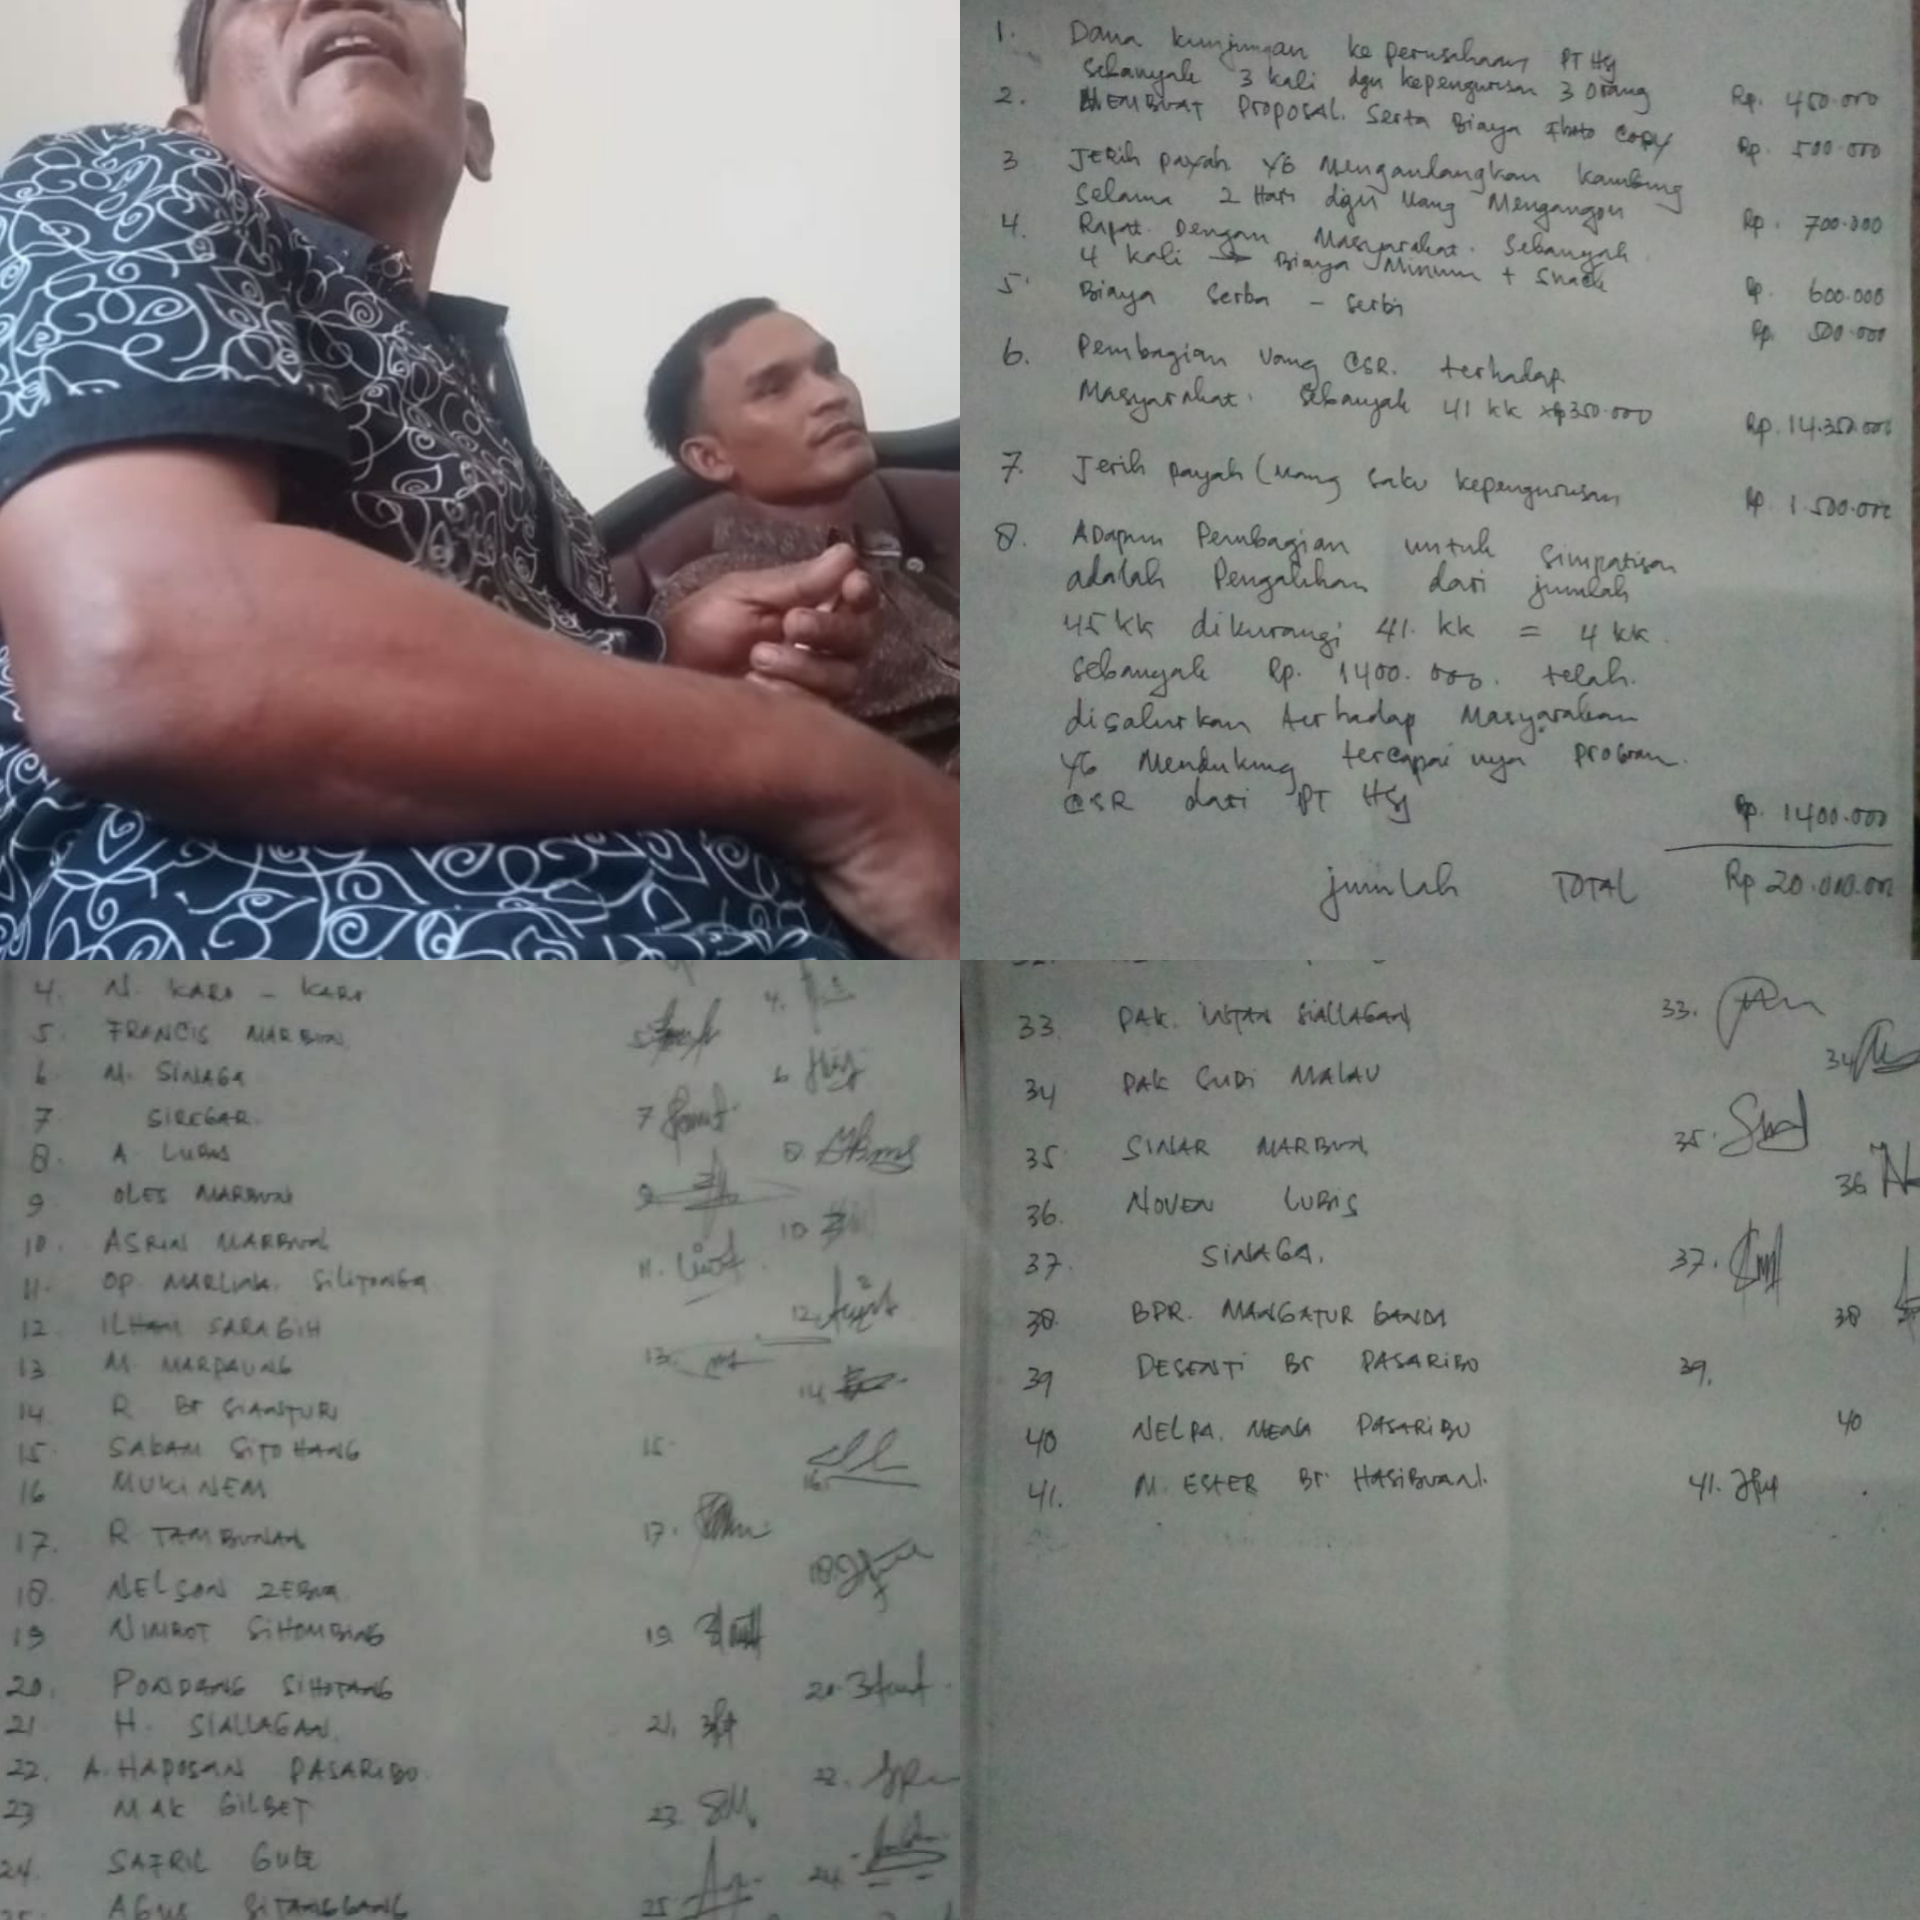 1. Dana kunjungan ke perusahaan PT HSJ
sebanyak 3 kali dgn kepengurusan 3 orang Rp. 450.000
2. MEMBUAT Proposal. Serta Biaya Foto Copy Rp. 500.000
3 JERih payah YG Mengandangkan Kambing
Selama 2 Hari dgn Uang Mengangon Rp. 700.000
4. Rapat Dengan Masyarakat. Sebanyak
4 kali → Biaya Minum + Snack Rp. 600.000
5. Biaya Serba - Serbi Rp. 500.000
6. Pembagian Uang CSR. terhadap
Masyarakat. Sebanyak 41 KK x Rp 350.000 Rp. 14.350.000
7. Jerih payah (Uang saku kepengurusan Rp. 1.500.000
8. Adapun Pembagian untuk Simpatisan
adalah Pengalihan dari jumlah
45 KK dikurangi 41 KK = 4 KK.
Sebanyak Rp. 1400.000. telah.
disalurkan terhadap Masyarakan
YG Mendukung tercapai nya program.
CSR dari PT HSJ
Rp. 1400.000
jumlah TOTAL Rp 20.000.000
4. N. KARO - KARO 4.
5. FRANCIS MARBUN 5
6 M. SINAGA 6
7 SIREGAR. 7
8. A LUBIS 8
9 OLES MARBUN 9
10. ASRIN MARBUN 10
11. OP. MARLINA. SILITONGA 11.
12. ILHAM SARAGIH 12.
13 M. MARPAUNG 13.
14 R Br SIANTURI 14
15. SABAM SITOHANG 15.
16 MUKINEM 16.
17. R TAMBUNAN 17.
18. NELSON ZEBUA 18.
19 NIMROT SIHOMBING 19.
20. PONDANG SIHOTANG 20.
21 H. SIALLAGAN. 21.
22. A. HAPOSAN PASARIBU. 22.
23 MAK GILBET 23.
24. SAFRIL GULE 24.
25. AGUS SITANGGANG 25
33 PAK. INTAN SIALLAGAN 33.
34 PAK SUDI MALAU 34
35 SINAR MARBUN 35.
36. NOVEN LUBIS 36
37. SINAGA. 37.
38. BPR. MANGATUR GANDA 38
39 DESENTI Br PASARIBU 39.
40 NELPA. MENA PASARIBU 40
41. M. ESTER Br HASIBUAN. 41.